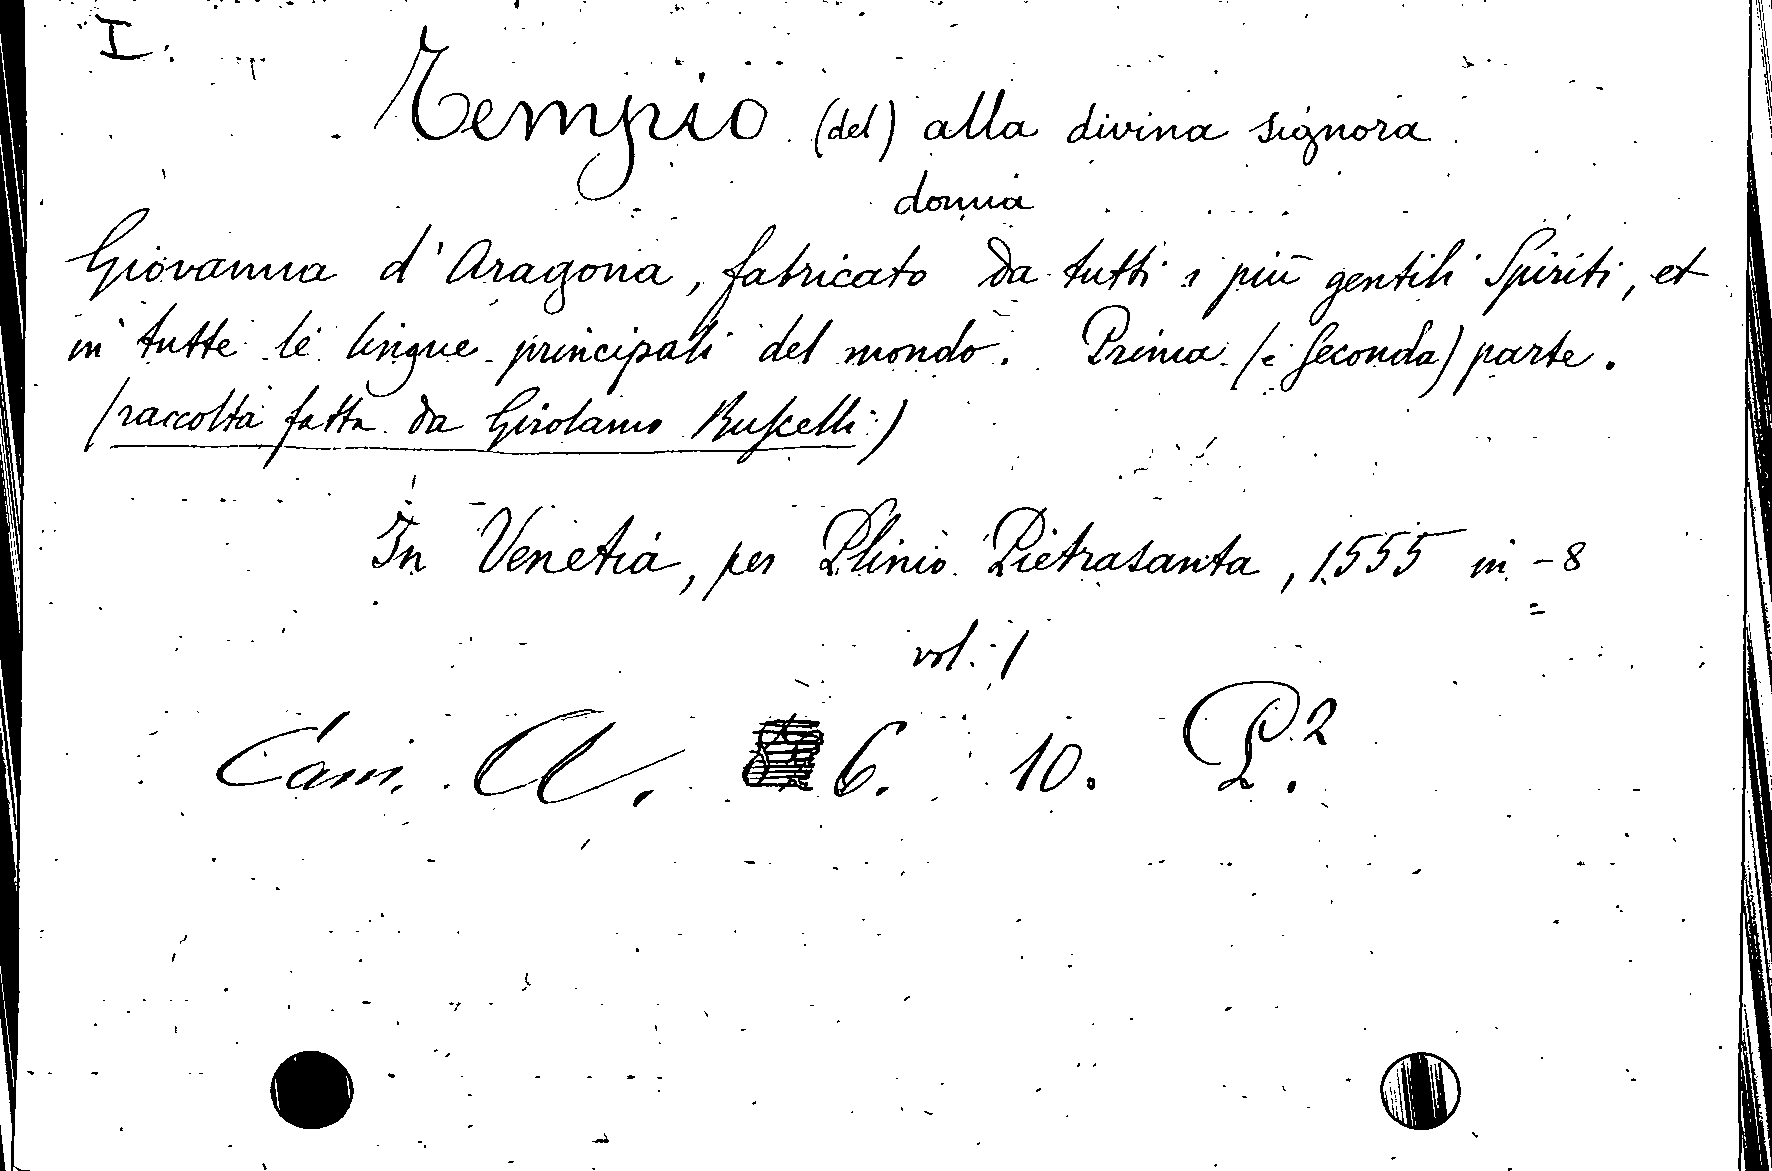 I.
Tempio (del) alla divina signora
donna
Giovanna d'Aragona, fabricato da tutti i più gentili Spiriti, et
in tutte le lingue principali del mondo. Prima (e seconda) parte.
(raccolta fatta da Girolamo Ruscelli)
In Venetia, per Plinio Pietrasanta, 1555 in-8
vol. 1
Cam. A. 6. 10. P.2